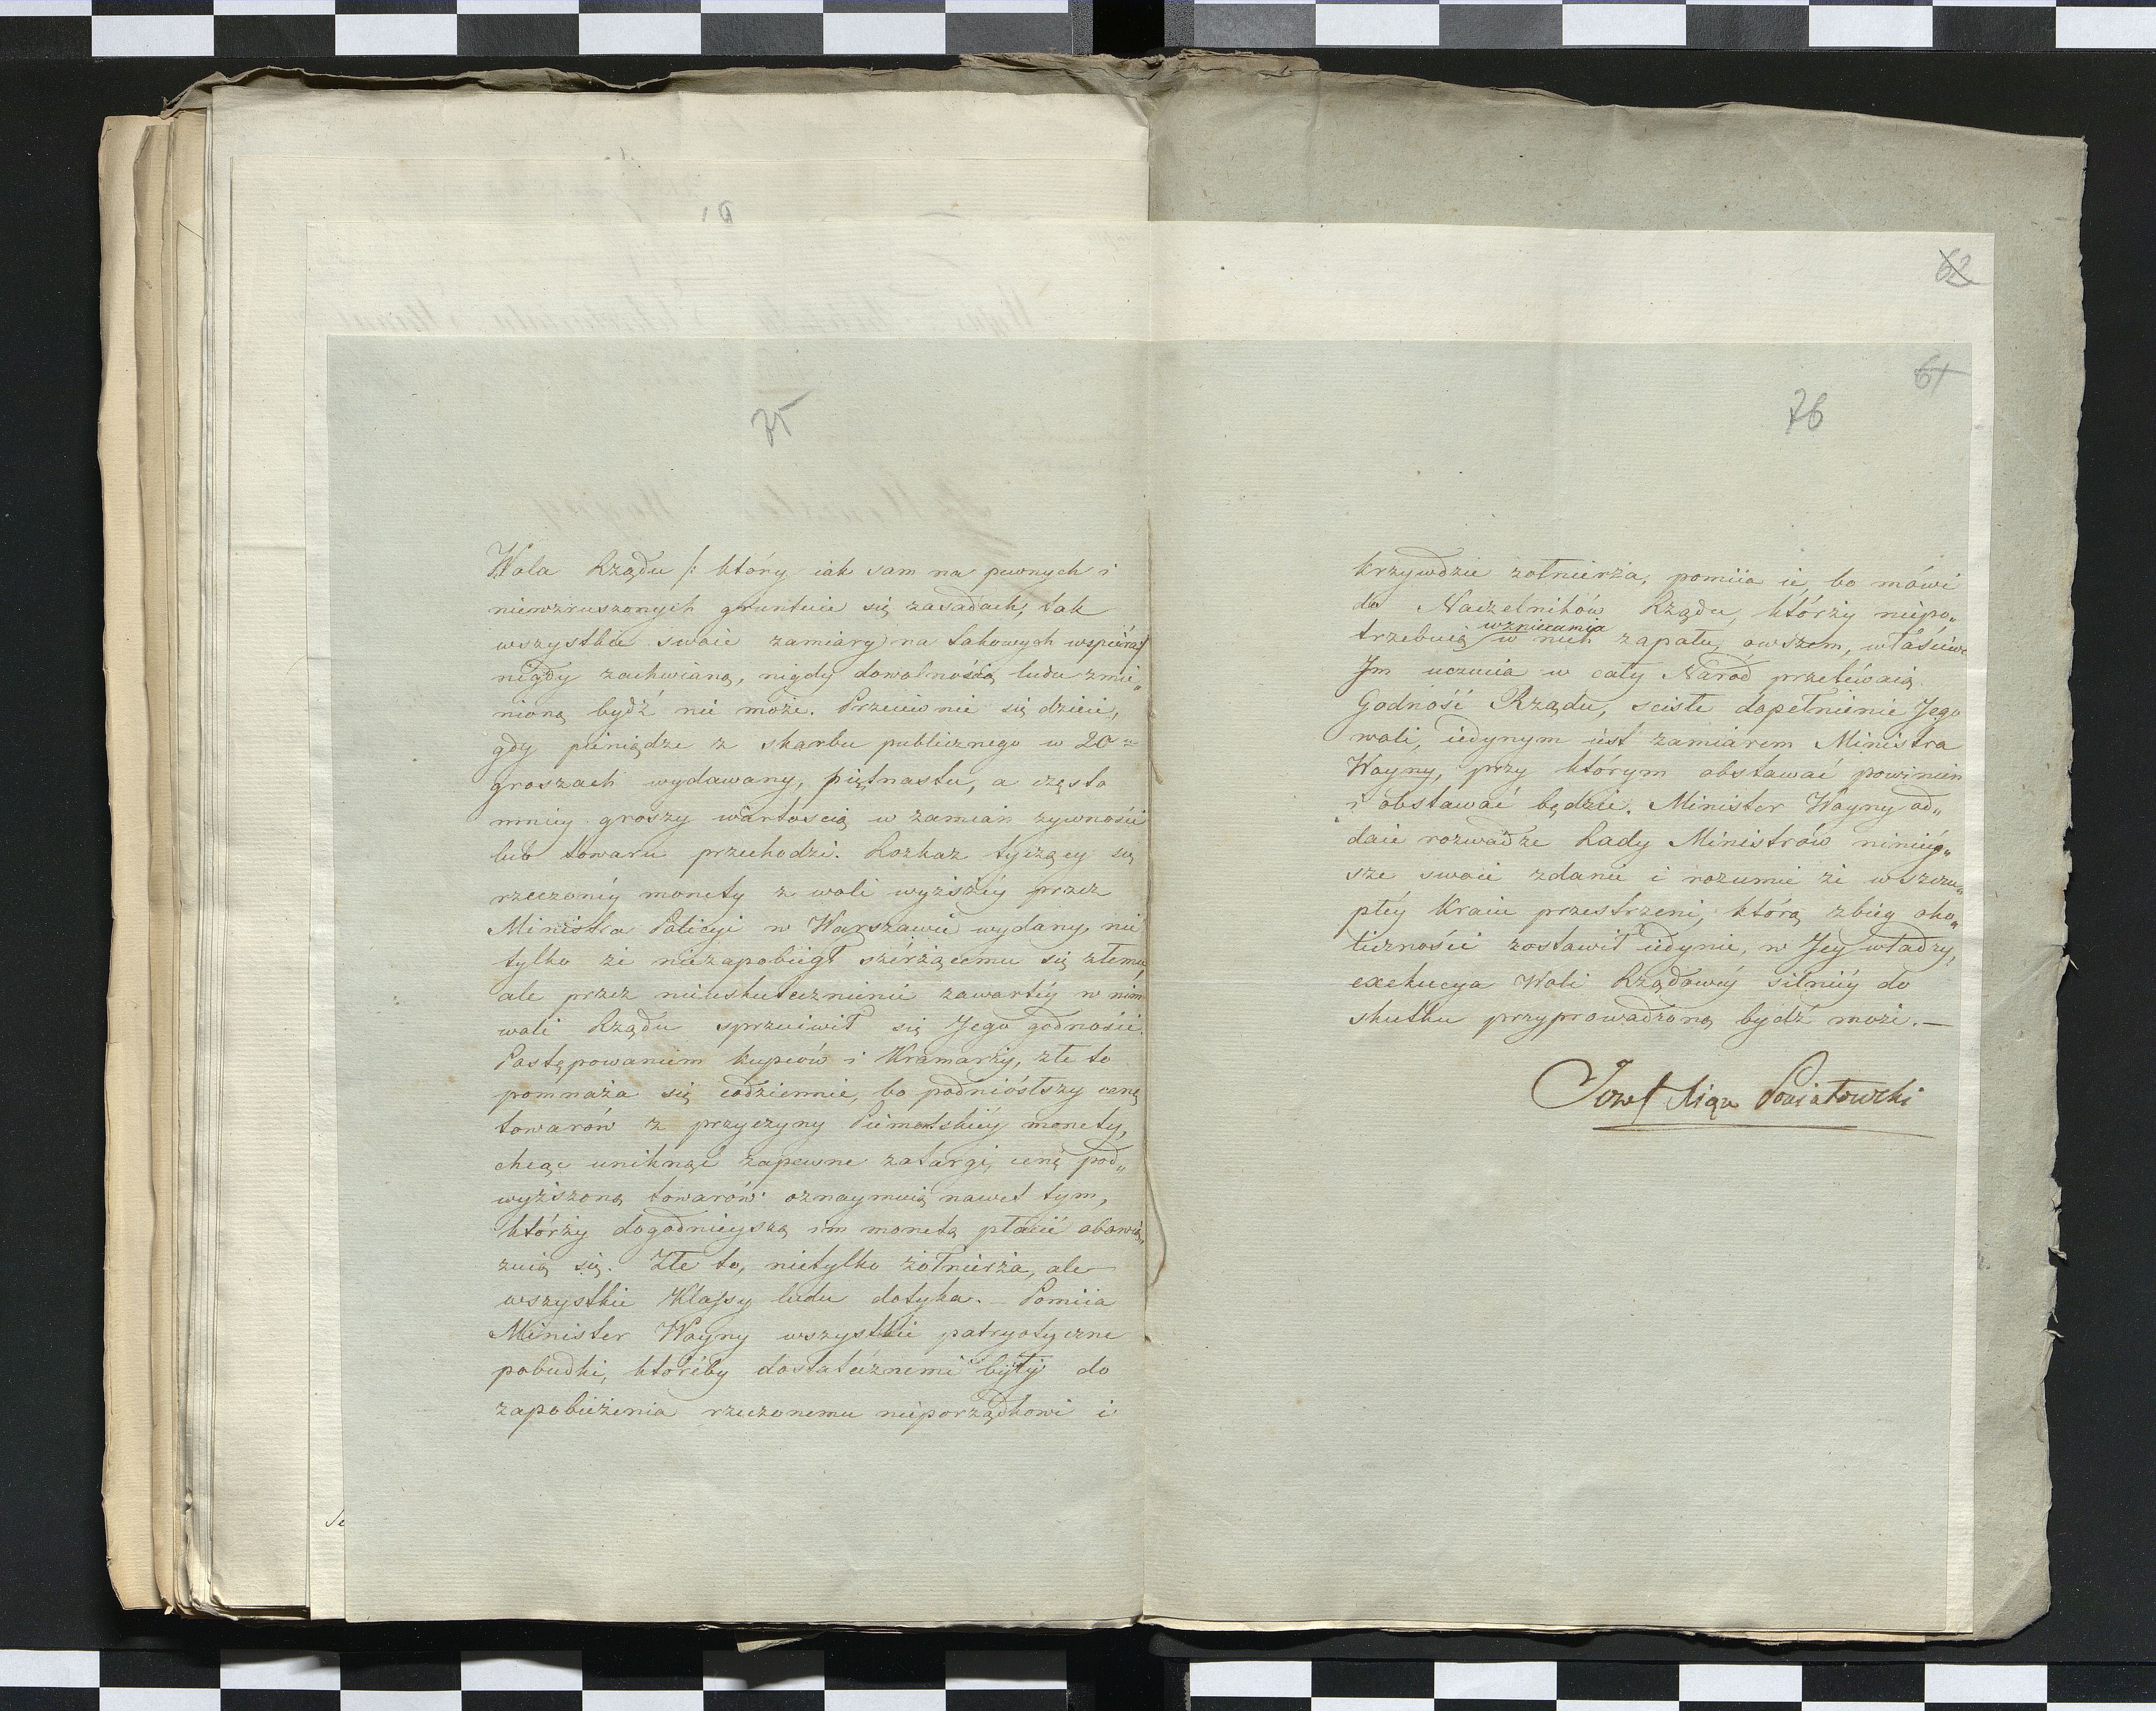 75
Wola Rządu /: który iak sam na pewnych i
niewzruszonych gruntuie się zasadach, tak
wszystkie swoie zamiary na takowych wspiéra :/
nigdy zachwianą, nigdy dowolnością ludu zmie„
nioną bydź nie może. Przeciwnie się dzieie,
gdy pieniądze z skarbu publicznego w 20 =
groszach wydawany, piętnastu, a często
mniey groszy wartością w zamian żywności
lub towaru przechodzi. Rozkaz tyczący się
rzeczonéy monety z woli wyższéy przez
Ministra Policyi w Warszawie wydany, nie
tylko że niezapobiegł szérzącemu się złemu,
ale przez nieuskutecznienie zawartéy w nim
woli Rządu sprzeciwił się Jego godności.
Postępowaniem kupców i Kramarzy, złe to
pomnaża się codziennie, bo podniósłszy cenę
towarów z przyczyny Piemontskiéy monety,
chcąc uniknąć zapewne zatargi, cenę pod„
wyższoną towarów oznaymuią nawet tym,
którzy dogodnieyszą im monetą płacić obowią„
zuią się. Złe to, nietylko żołnierza, ale
wszystkie Klassy ludu dotyka. – Pomiia
Minister Woyny wszystkie patryotyczne
pobudki, któreby dostatecznemi były do
zapobieżenia rzeczonemu nieporządkowi i
62
61
76
krzywdzie żołnierza, pomiia ie, bo mówi
do Naczelników Rządu, którzy niepo„
wzniecania
trzebuią w nich zapału, owszem, właściwe
Im uczucia w cały Naród przeléwaią.
Godność Rządu, ściste dopełnienie Jego
woli, iedynym iest zamiarem Ministra
Woyny, przy którym obstawać powinien
i obstawać będzie. Minister Woyny od„
daie rozwadze Rady Ministrów ninieỷ„
sze swoie zdanie i rozumie że w szczu„
płéy Kraiu przestrzeni, którą zbieg oko„
liczności zostawił iedynie, w Jey władzy,
exekucya Woli Rządowéy silniéy do
skutku przyprowadzoną bydź może. —
Jozef Xiąże Poniatowski